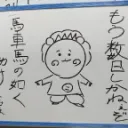 もう数日しかねぇぞ
馬車馬の如く